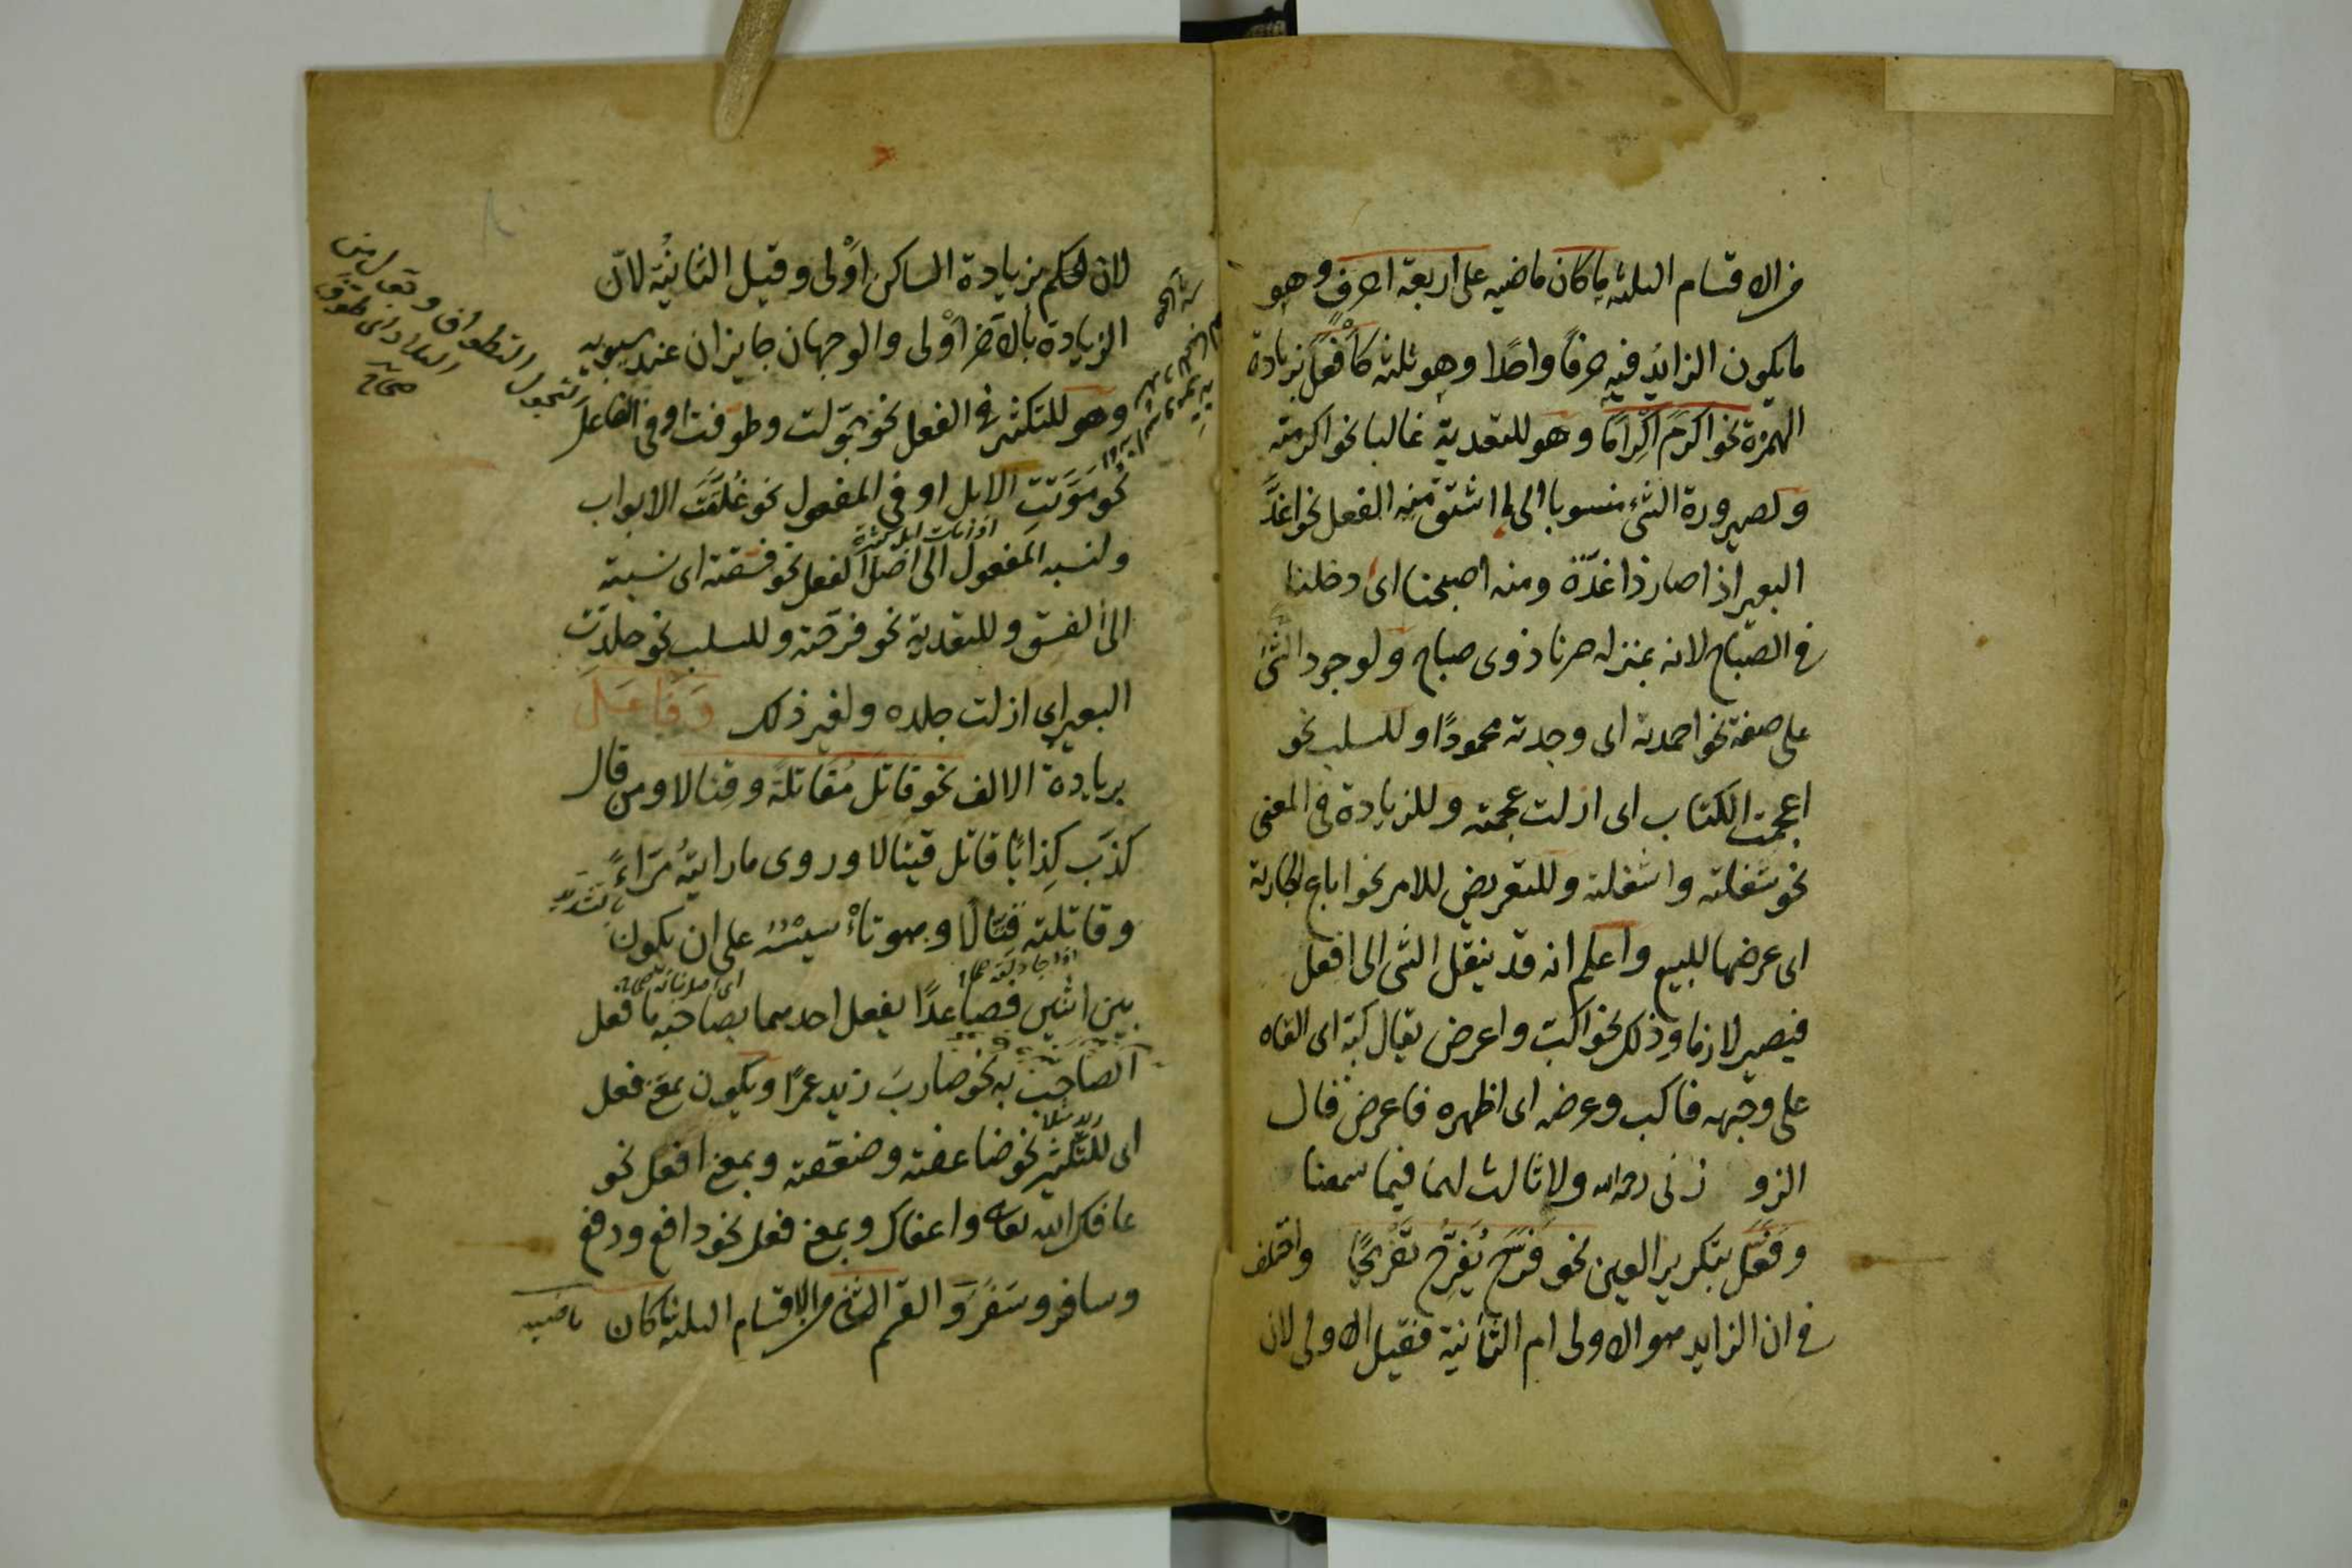 من الاقسام الثلثة ما كان ماضيه على اربعة احرف وهو
ما يكون الزائد فيه حرفا واحدا وهو ثلثة كأَفْعَل بزيادة
الهمزة نحو اكرَمَ اكْرامًا وهو للتعدية غالبا نحو اكرمته
ولصيرورة الشئ منسوبا الى ما اشتق منه الفعل نحو اغدَّ
البعير اذا صار ذا غدّة ومنه اصبحنا اى دخلنا
فى الصباح لانه بمنزلة صرنا ذوى صباح ولوجود الشئ
على صفة نحو احمدته اى وجدته محمودًا وللسلب نحو
اعجمت الكتاب اى ازلت عجمته وللزيادة فى المعنى
نحو شغلته واشغلته وللتعريض للامر نحو اباع الجارية
اى عرضها للبيع واعلم انه قد ينقل الشئ الى افعل
فيصير لازما وذلك نحو اكب واعرض يقال كبه اى القاه
على وجهه فاكب وعرضه اى اظهره فاعرض قال
الزوزنى رحمه الله ولا ثالث لهما فيما سمعنا
وفَعَّل بتكرير العين نحو فَرَّحَ يُفَرِّحُ تَفْرِيحًا واختلف
فى ان الزايد هو الاولى ام الثانية فقيل الاولى لان
لان الحكم بزيادة الساكن اوْلى وقيل الثانية لانّ
الزيادة بالآخر اوْلى والوجهان جايزان عند سيبويه
وهو للتكثير فى الفعل نحو جوّلت وطوّفت او فى الفاعل
نحو مَوَّتَتِ الابل او فى المفعول نحو غَلَّقَتْ الابواب
اذا مات ابل كثيرة
ولنسبة المفعول الى اصل الفعل نحو فسّقته اى نسبته
الى الفسق وللتعدية نحو فرحته وللسلب نحو جلّدْتُ
البعير اى ازلت جلده ولغير ذلك وَفَاعَلَ
بزيادة الالف نحو قاتَلَ مُقَاتَلَةً وقتالا ومن قال
كذَّب كِذابًا قاتل قيتالا وروى ماراَيْتُهُ مرّاءً
بالتشديد
وقاتلته قتّالا وتأسيسه على ان يكون
بين اثنين فصاعدًا يفعل احدهما بصاحبه ما فعل
الصاحب به نحو ضاربَ زيد عمرًا ويكون بمعنى فعّل
اى للتكثير نحو ضاعفته وضعّفته وبمعنى افعل نحو
عافاك الله تعالى واعفاك وبمعنى فعل نحو دافع ودفع
وسافر وسَفَرَ والقسم الثانى من الاقسام الثلثة ما كان ماضيه